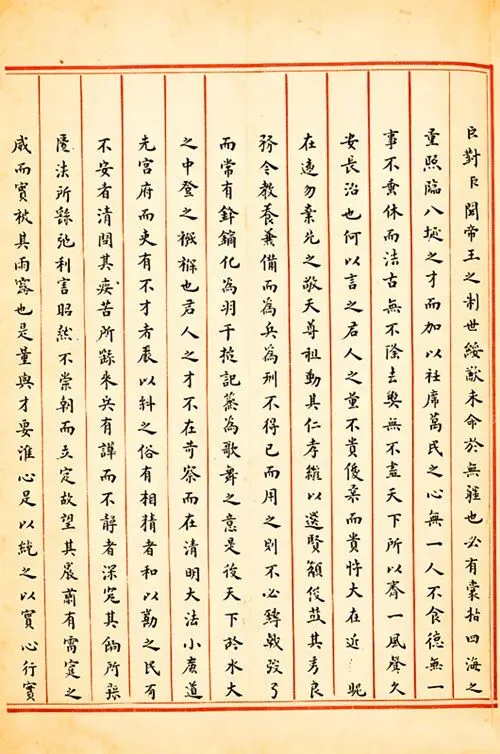 臣對臣聞帝王之制世綏猷未命於無疆也必有囊括四海之
量照臨八埏之才而加以衽席萬民之心無一人不食德無一
事不垂休而法古無不隆去弊無不盡天下所以齊一風聲久
安長治也何以言之君人之量不貴優柔而貴恃大在近
在遠勿棄先之敬天尊祖動其仁孝繼以選賢籲俊益其秀良
務令教養兼備而為兵為刑不得已而用之則不必戟弢弓
而常有鋒鏑化為羽干為歌舞之意是後天下於水大
之中登之也君人之才不在苛察而在清明大法小廉道
先宮府而吏有不才者以糾之俗有相猜者和以勤之民有
不安者清問其疾苦所繇來兵有譁而不靜者深究其餉所
法所繇弛利害昭然不崇朝而立定故望其有雷霆之
威而實被其雨露也是量與才要准心足以統之以實心行實